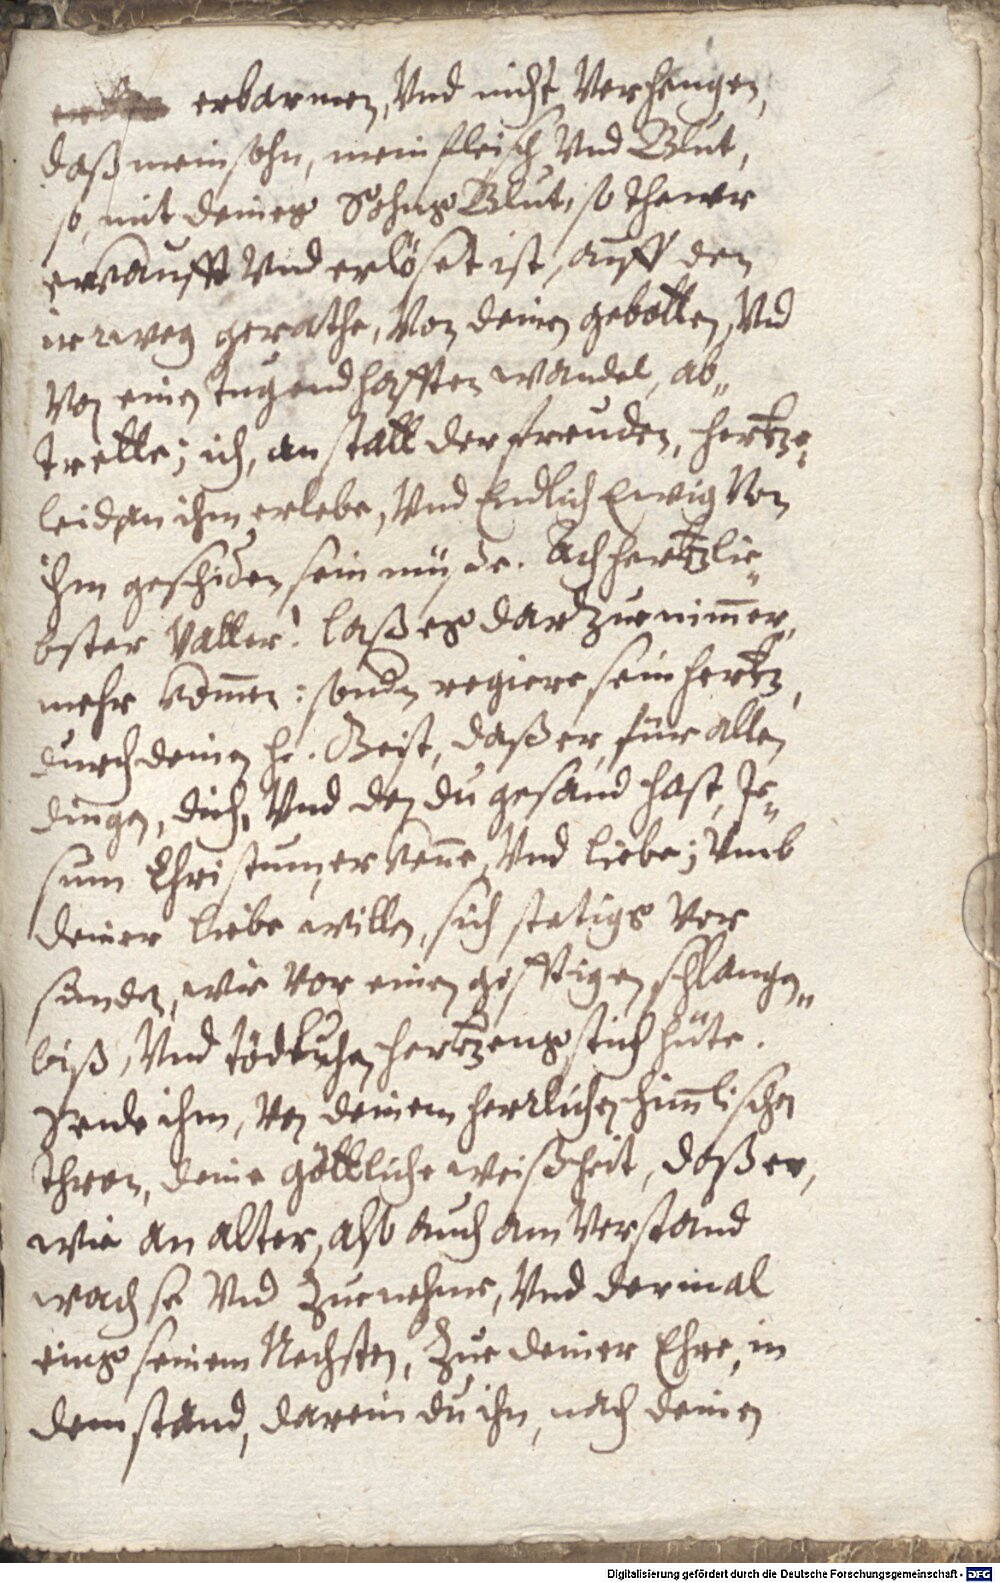 erbarmen, Vnd nicht Verhengen,
daß mein sohn, mein fleisch Vnd Blut,
so, mit deines Sohns Blut, so thewr
erkaufft Vnd erlöset ist, auff den
irrweg gerathe, Von deinen gebotten, Vnd
Von einen tugendhafften wandel, ab„
trette; ich, an statt der freuden, hertze„
leid an ihm erlebe, Vnd Endlich Ewig Von
ihm geschiden sein müste. Ach hertzlie„
bster Vatter! laß es dartzue nimmer„
mehr kommen: sondn regiere sein hertz,
durch deinen h. Geist, daß er, für allen
dingen, dich, Vnd den du gesand hast, Je„
sum Christum, erkenne, Vnd liebe; Vmb
deiner liebe willen, sich stetigs Vor
sünden, wie Vor einen gifftigen schlangen„
biß, Vnd tödtlichen hertzens stich hüte.
Sende ihm, Von deinem herrlichen himmlischen
thron, deine göttliche weißheit, daß er,
wie an alter, alß auch am Verstand
wachse Vnd Zuenehme, Vnd dermal
eins seinem Nechsten, Zue deiner Ehre, in
dem stand, darein du ihn, nach deinen
Digitalisierung gefördert durch die Deutsche Forschungsgemeinschaft - DFG